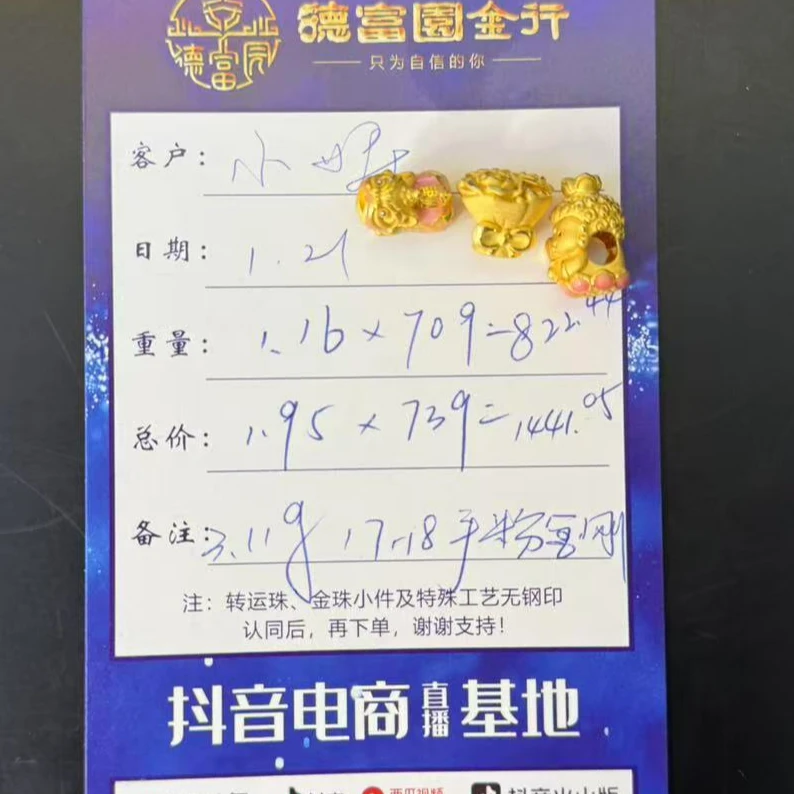 德富園金行
德富园
只为自信的你
客户：小
日期：1.21
重量：1.16×709=822.44
总价：1.95×739=1441.05
备注：3.11g 17-18手粉
注：转运珠、金珠小件及特殊工艺无钢印
认同后，再下单，谢谢支持！
抖音电商直播基地
西瓜视频
抖音火山版